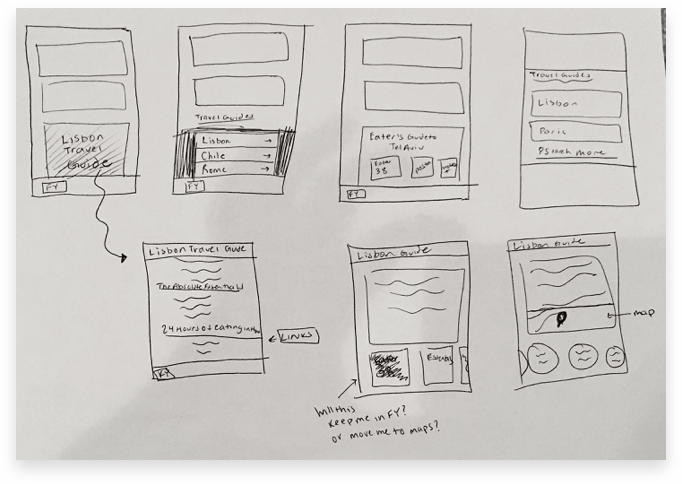 Lisbon
Travel
Guide
FY
Travel Guides
Lisbon →
Chile →
Rome →
FY
Eater's Guide to
Tel Aviv
Eater
38
FY
Travel Guides
Lisbon
Paris
search more
Lisbon Travel Guide
The Absolute Essentials
24 Hours of Eating in
LINKS
FY
Lisbon Guide
Eater
Will this
keep me in FY?
or move me to maps?
Lisbon Guide
map